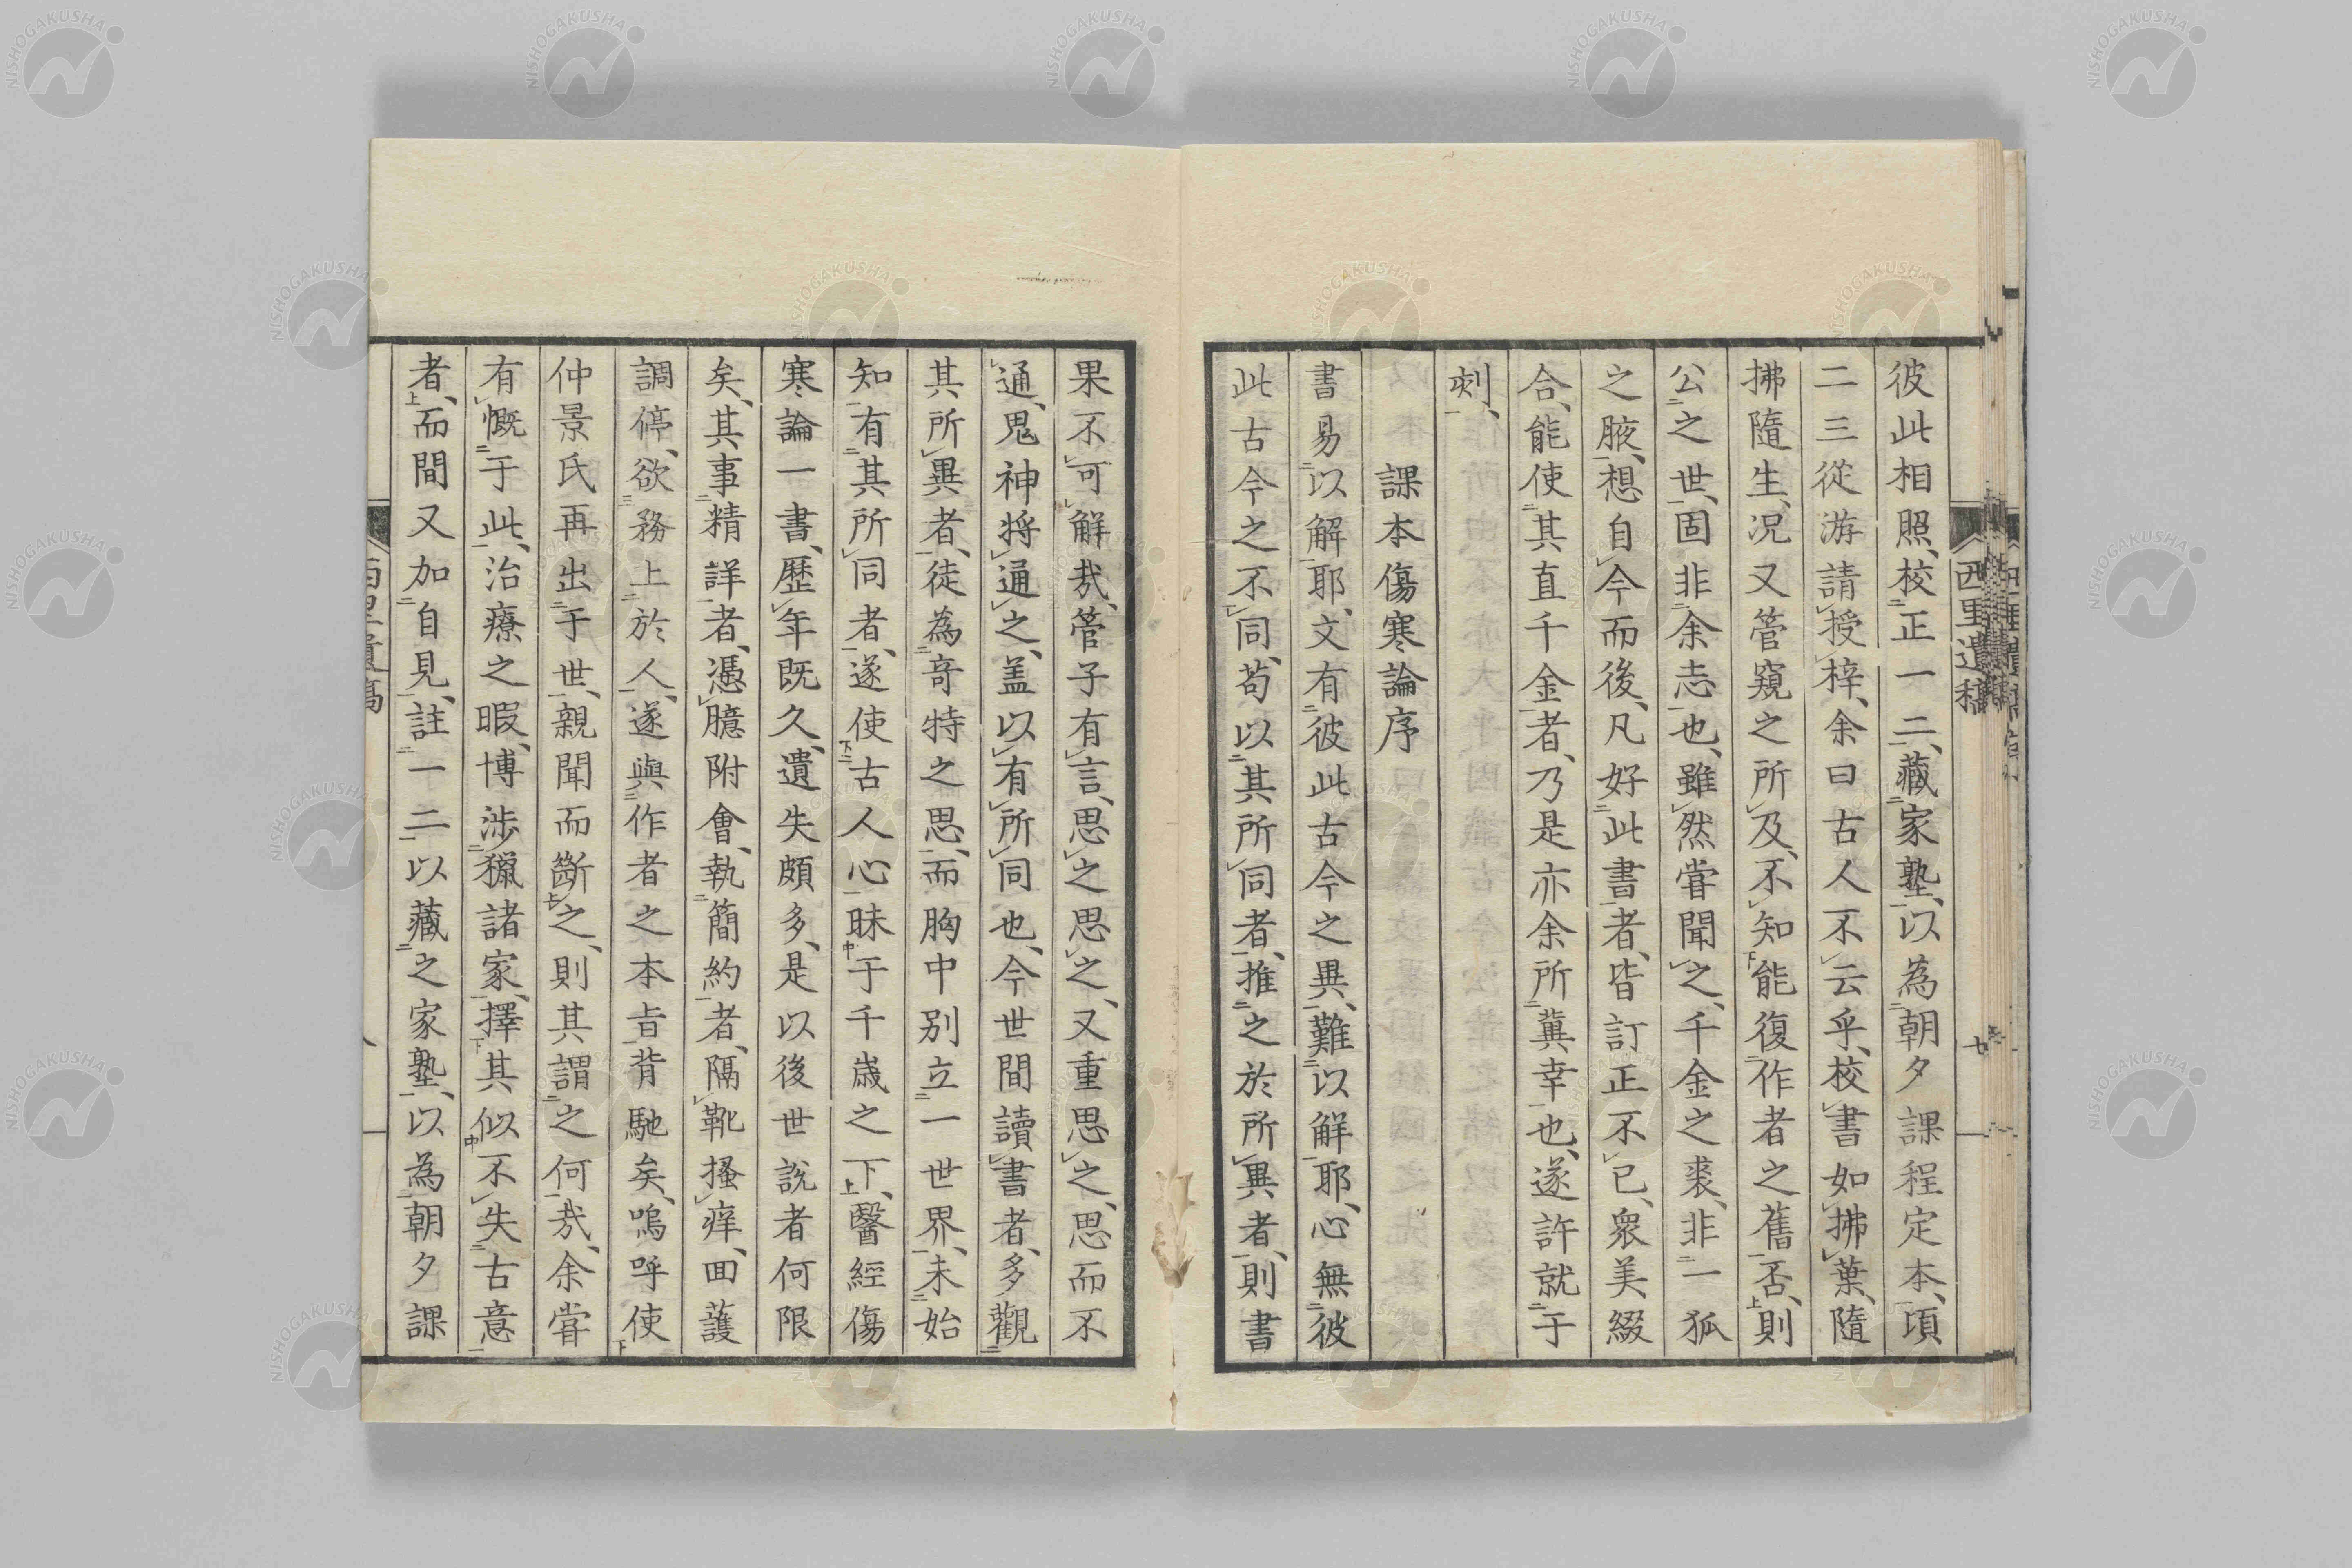 彼此相照、校正一二、藏家塾、以為朝夕課程定本、頃
二三從游請授梓、余曰古人不云乎、校書如拂葉、隨
拂隨生、况又管窺之所及、不知能復作者之舊否、則
公之世、固非余志也、雖然嘗聞之、千金之裘、非一狐
之腋、想自今而後、凡好此書者、皆訂正不已、衆美綴
合、能使其直千金者、乃是亦余所冀幸也、遂許就于
刻、
課本傷寒論序
書易以解耶、文有彼此古今之異、難以解耶、心無彼
此古今之不同、苟以其所同者、推之於所異者、則書
果不可解哉、管子有言、思之思之、又重思之、思而不
通、鬼神將通之、盖以有所同也、今世間讀書者、多觀
其所異者、徒為奇特之思、而胸中別立一世界、未始
知有其所同者、遂使古人心昧于千歳之下、醫經傷
寒論一書、歷年既久、遺失頗多、是以後世說者何限
矣、其事精詳者、憑臆附會、執簡約者、隔靴搔痒、回護
調停、欲務上於人、遂與作者之本旨背馳矣、嗚呼使
仲景氏再出于世、親聞而斷之、則其謂之何哉、余嘗
有慨于此、治療之暇、博涉獵諸家、擇其似不失古意
者、而間又加自見、註一二以藏之家塾、以為朝夕課
西里遺稿
七
NISHOGAKUSHA